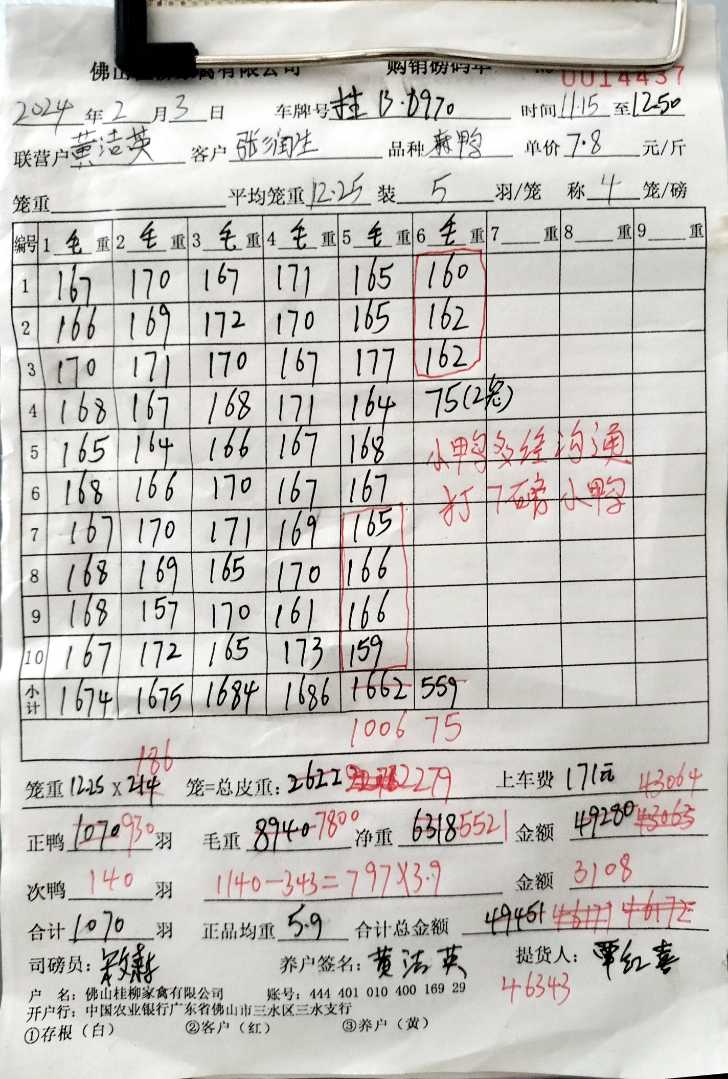 佛山桂柳家禽有限公司 购销磅码单 0014437
2024 年 2 月 3 日 车牌号 桂B·D970 时间 11:15 至 12:50
联营户 黄洁英 客户 张润生 品种 麻鸭 单价 7.8 元/斤
笼重 平均笼重 12.25 装 5 羽/笼 称 4 笼/磅
编号 1 毛 重 2 毛 重 3 毛 重 4 毛 重 5 毛 重 6 毛 重 7 重 8 重 9 重
1 167 170 167 171 165 160
2 166 169 172 170 165 162
3 170 171 170 167 177 162
4 168 167 168 171 164 75(2笼)
5 165 164 166 167 168 小鸭多经沟通
6 168 166 170 167 167 打7磅小鸭
7 167 170 171 169 165
8 168 169 165 170 166
9 168 157 170 161 166
10 167 172 165 173 159
小计 1674 1675 1684 1686 1662 559
1006 75
186
笼重 12.25 × 214 笼=总皮重: 2622 2279 上车费 171元 43064
正鸭 1070 930 羽 毛重 8940 7800 净重 6318 5521 金额 49280 43063
次鸭 140 羽 1140-343=797×3.9 金额 3108
合计 1070 羽 正品均重 5.9 合计总金额 49451 46171 46172
司磅员: 养户签名: 黄洁英 提货人: 覃红喜
46343
户 名: 佛山桂柳家禽有限公司 账号: 444 401 010 400 169 29
开户行: 中国农业银行广东省佛山市三水区三水支行
①存根(白) ②客户(红) ③养户(黄)